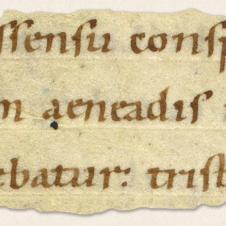 ssensu cons
m aeneadis
ebatur: trist